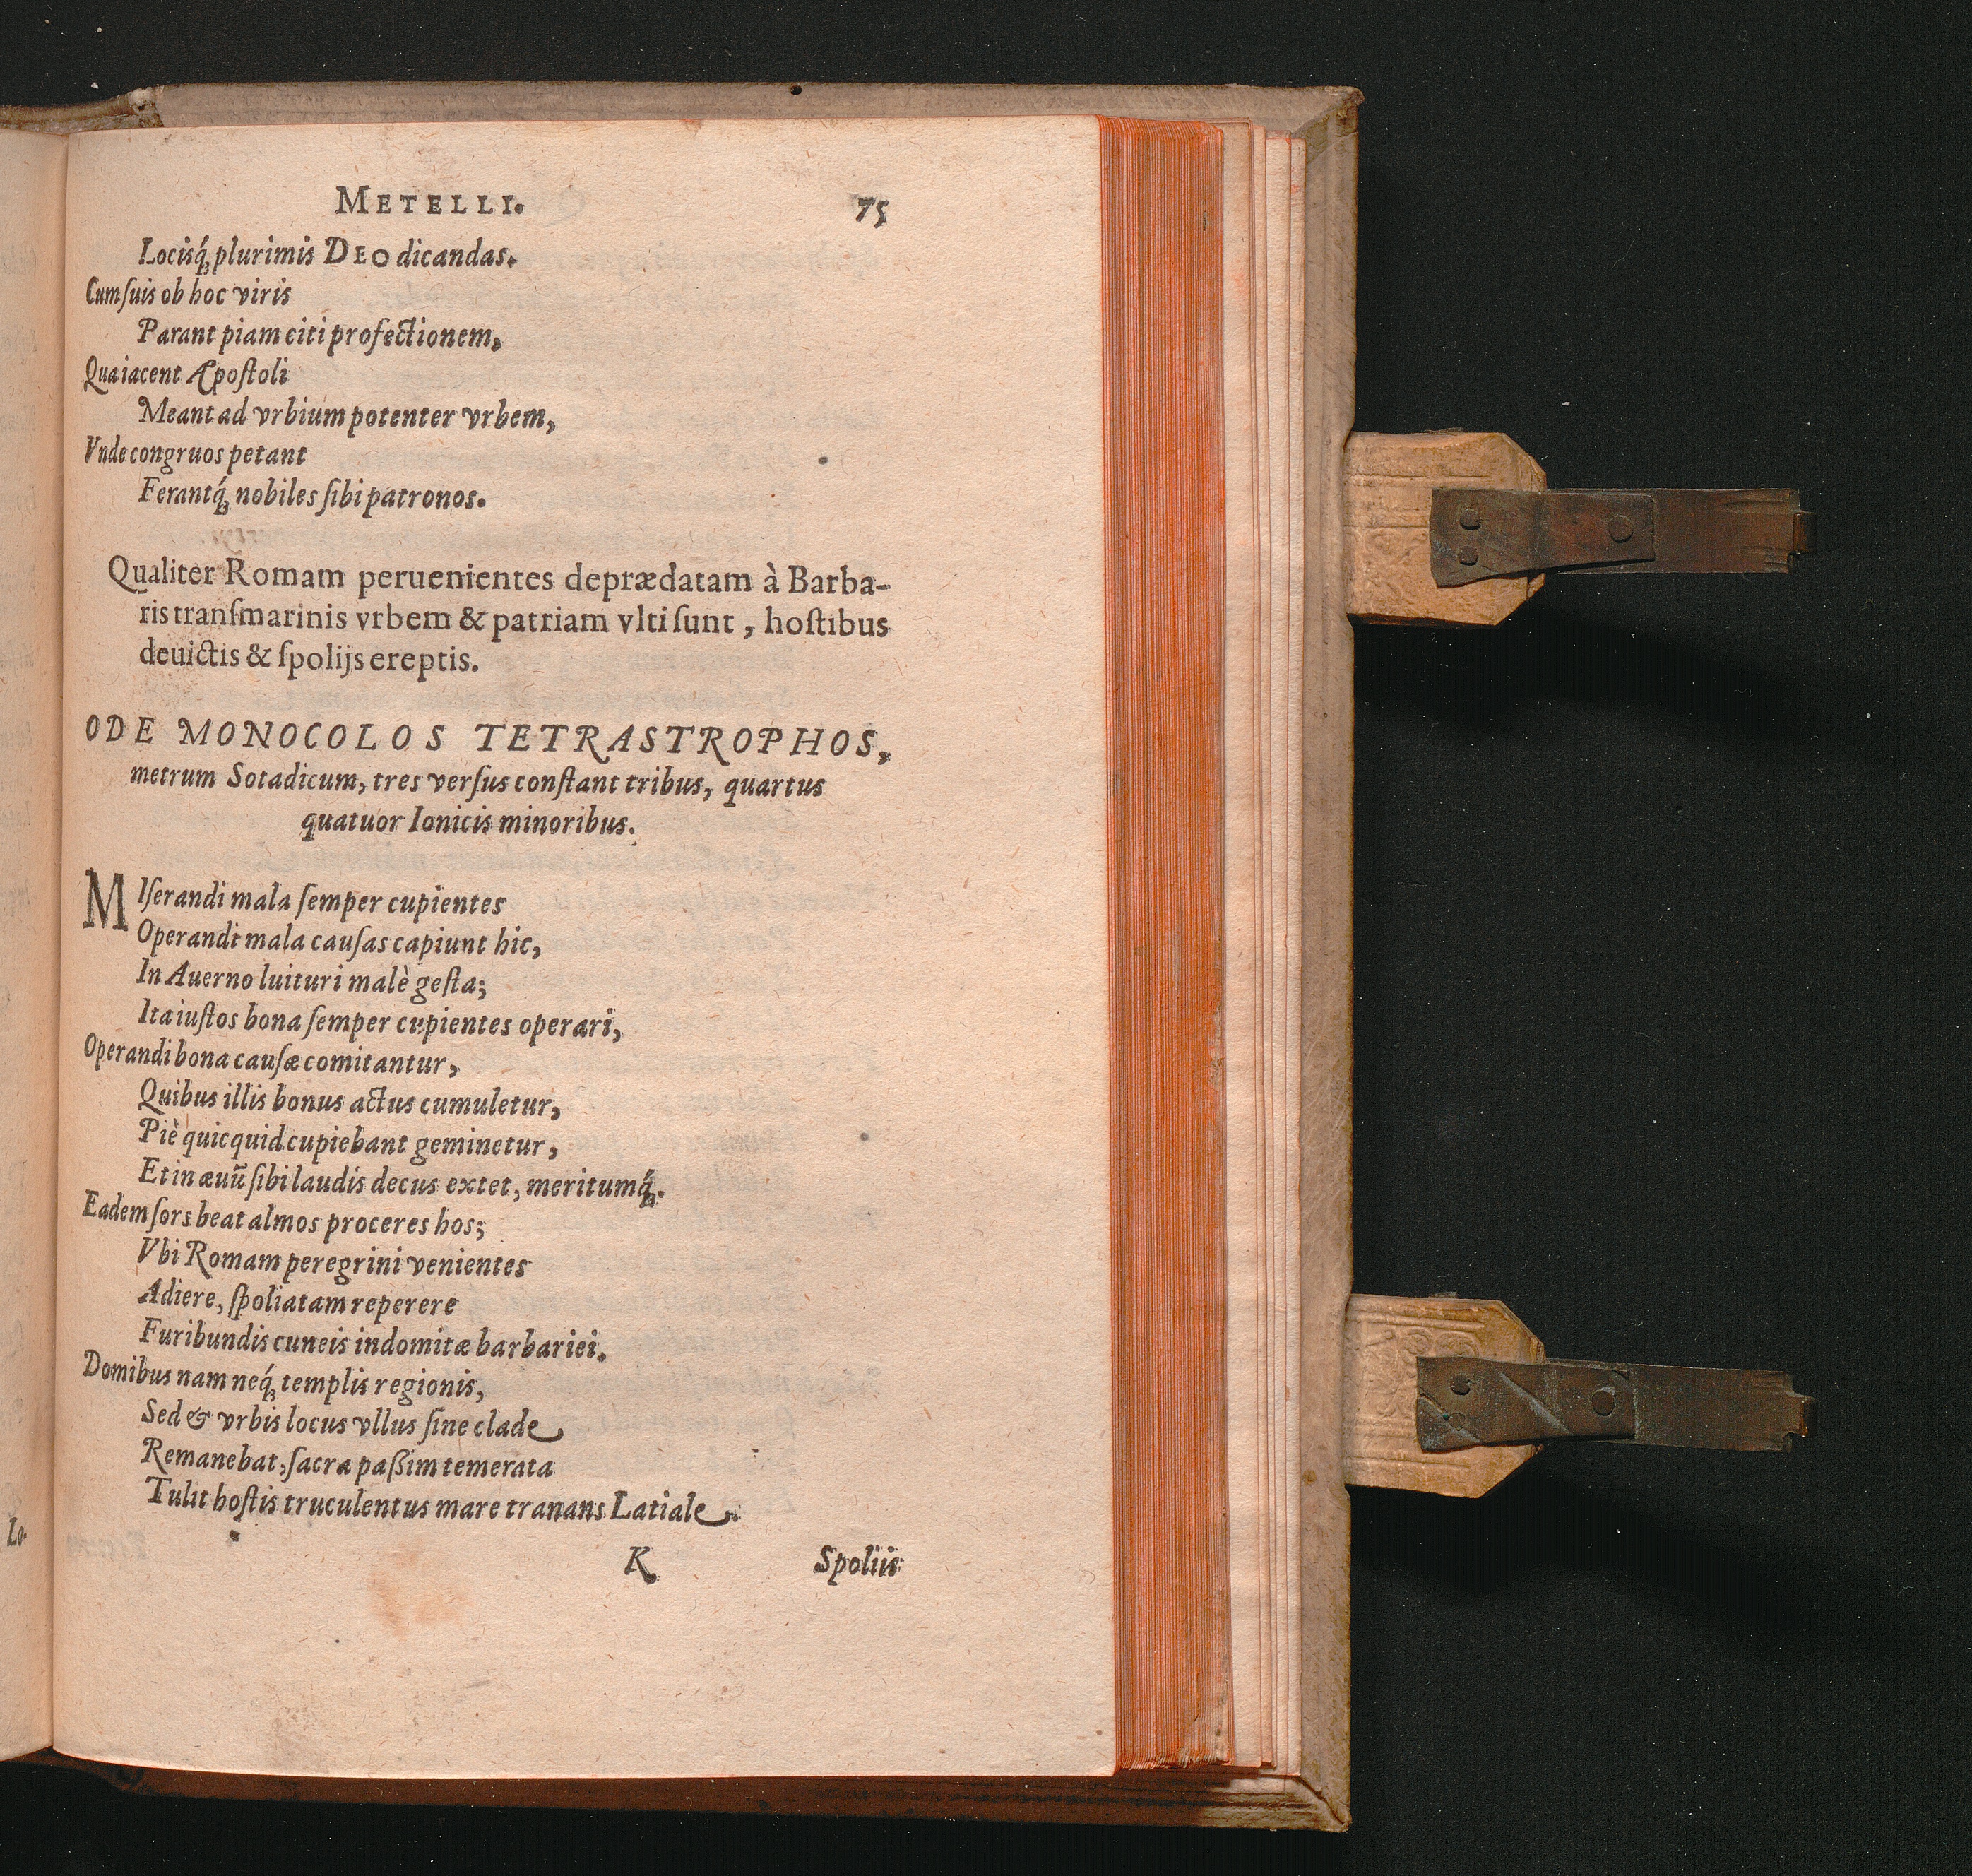 METELLI. 75
Locisq́; plurimis DEO dicandas.
Cum ſuis ob hoc viris
Parant piam citi profectionem,
Qua iacent Apoſtoli
Meant ad vrbium potenter vrbem,
Vnde congruos petant
Ferantq́; nobiles ſibi patronos.
Qualiter Romam peruenientes deprædatam à Barba-
ris tranſmarinis vrbem & patriam vlti ſunt, hoſtibus
deuictis & ſpolijs ereptis.
ODE MONOCOLOS TETRASTROPHOS,
metrum Sotadicum, tres verſus conſtant tribus, quartus
quatuor Ionicis minoribus.
MIſerandi mala ſemper cupientes
Operandi mala cauſas capiunt hic,
In Auerno luituri malè geſta;
Ita iuſtos bona ſemper cupientes operari,
Operandi bona cauſæ comitantur,
Quibus illis bonus actus cumuletur,
Piè quicquid cupiebant geminetur,
Et in æuũ ſibi laudis decus extet, meritumq́;.
Eadem ſors beat almos proceres hos;
Vbi Romam peregrini venientes
Adiere, ſpoliatam reperere
Furibundis cuneis indomitæ barbariei.
Domibus nam neq́; templis regionis,
Sed & vrbis locus vllus ſine clade
Remanebat, ſacra paßim temerata
Tulit hoſtis truculentus mare tranans Latiale.
K Spoliis
Lo-